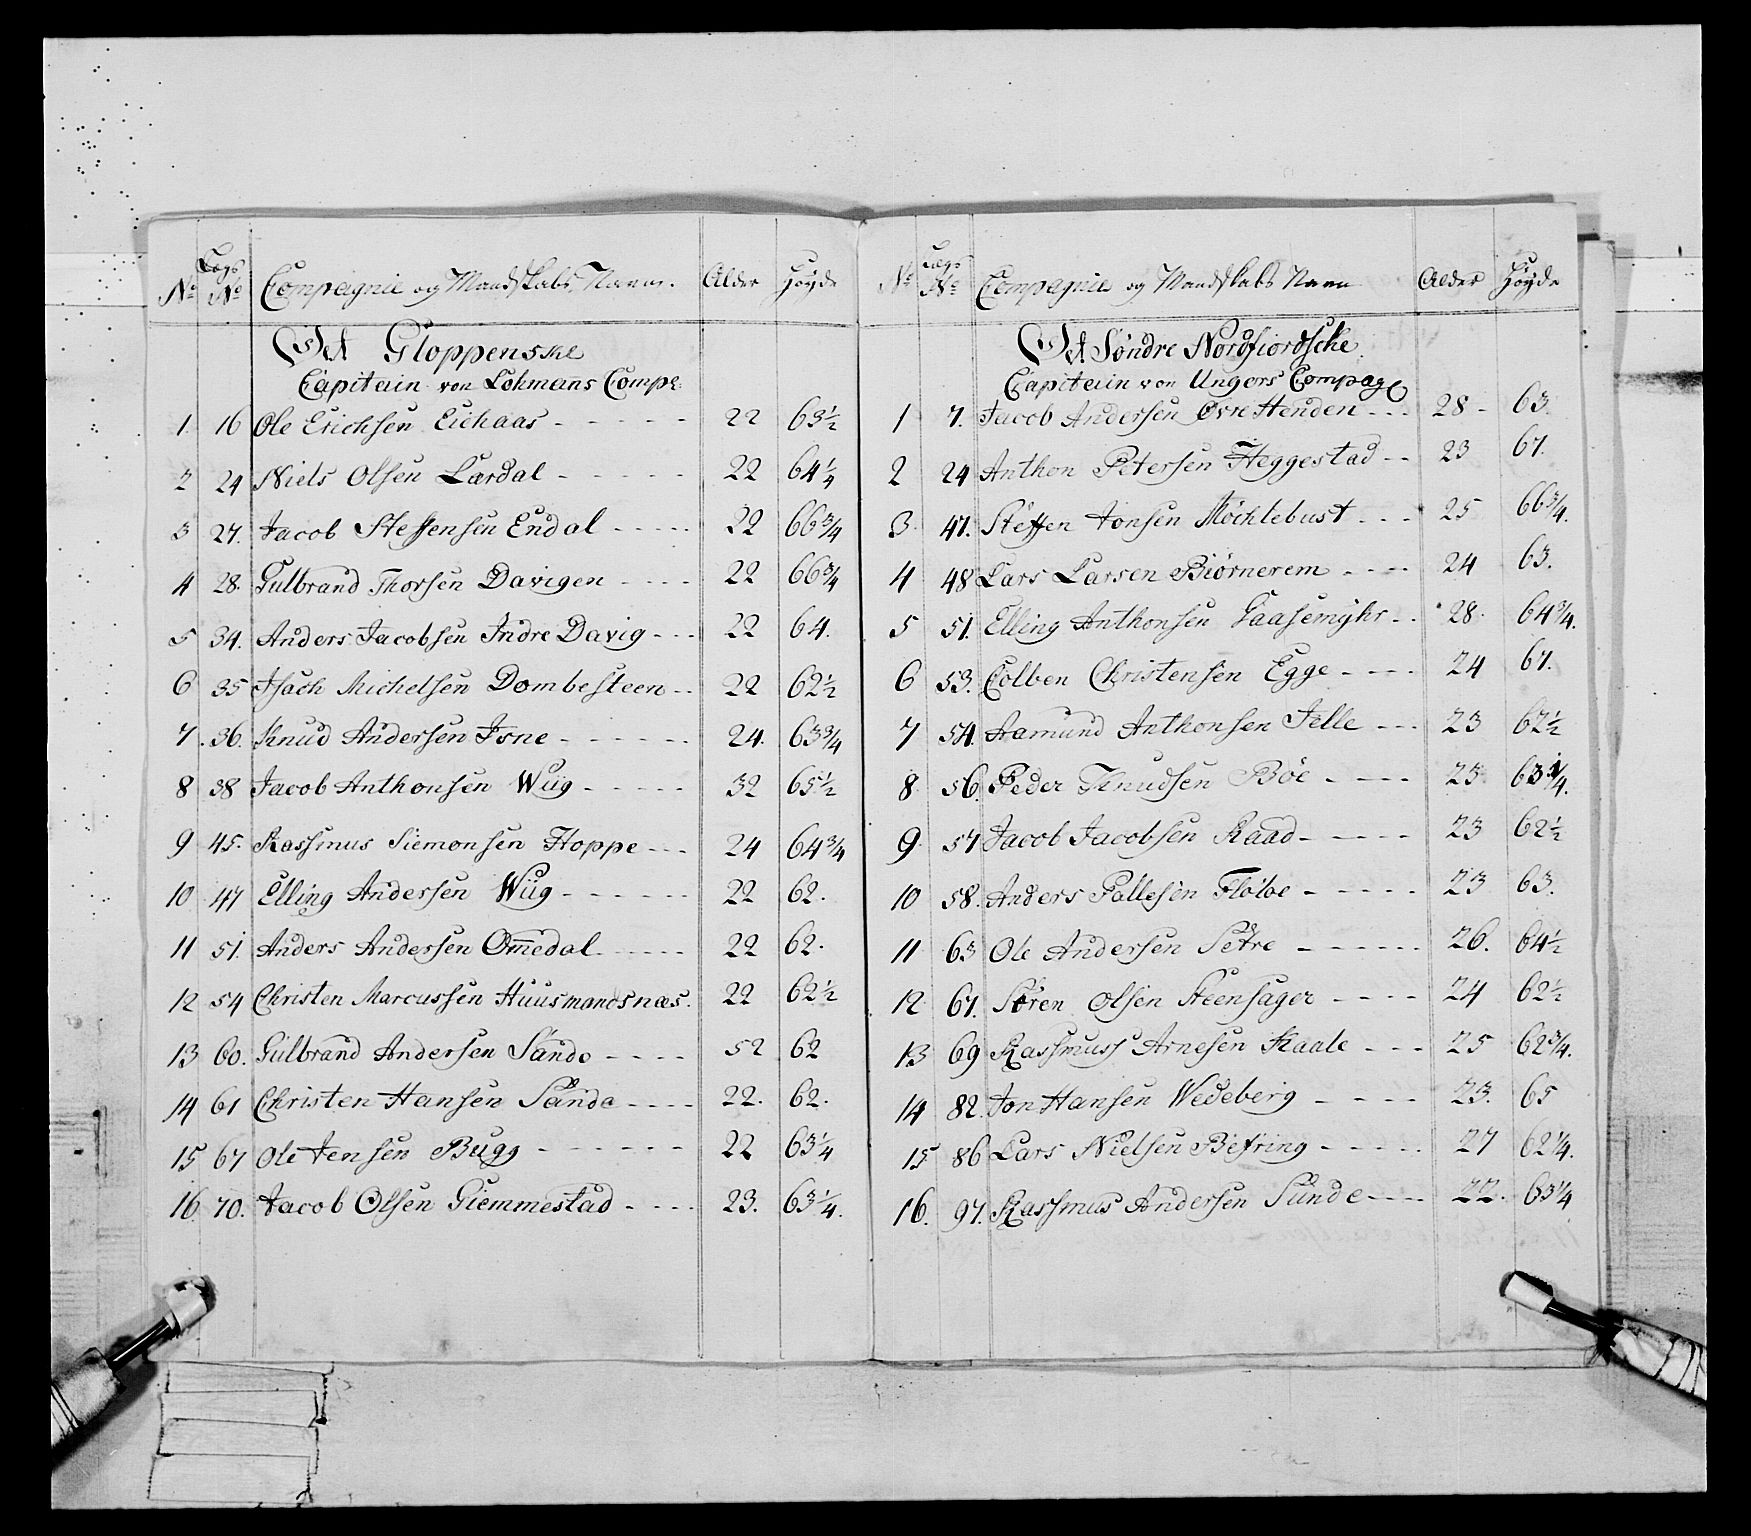 No Lægs No Compagnie og Mandskabs Navn. Alder Høyde
Det Gloppenske
Capitain von Lohmans Compe:
1. 16 Ole Erichsen Eichaas - - - - - 22 63½
2 24 Niels Olsen Lærdal - - - - - 22 64¼
3 27. Jacob Steffensen Endal - - - - - 22 66¾
4 28. Gulbrand Thorsen Davigen - - - - 22 66¾
5 34. Anders Jacobsen Indre Davig - - - 22 64.
6 35 Isach Michelsen Dombesteen - - 22 62½
7. 36. Knud Andersen Isne - - - - - - 24. 63¾
8 38 Jacob Anthonsen Wüg - - - - - 32 65½
9 45. Rassmus Siemonsen Hoppe - - - 24 64¾
10 47 Elling Andersen Wüg - - - - - - 22 62.
11 51. Anders Andersen Om̄edal - - - - - 22 62.
12 54 Christen Marcussen Huusmandsnæs. 22 62½
13 60. Gulbrand Andersen Sande - - - - 52 62
14 61 Christen Hansen Sande - - - - 22. 62.
15 67 Ole Jensen Bugg - - - - - - 22 63¼
16. 70. Jacob Olsen Giemmestad - - - - 23. 63¼.
No Lægs No Compagnie og Mandskabs Navn Alder Høyde
Det Søndre Nordfiordsche
Capitain von Ungers Compag
1 7. Jacob Andersen Øvre Henden - - - 28 - 63.
2 24 Anthon Petersen Heggestad - - 23 67.
3. 47. Steffen Jonsen Möchlebust - - - 25 66¾.
4 48 Lars Larsen Biørnerem - - - - 24 63.
5 51. Elling Anthonsen Gaasemyhr - - 28. 64¾.
6 53. Colben Christensen Egge - - - - 24 67.
7 54. Aamund Anthonsen Felle - - - 23 62½
8. 56. Peder Knudsen Böe - - - - 25 63¼.
9. 57 Jacob Jacobsen Raad - - - - - 23 62½
10 58. Anders Pallesen Fløloe - - - - - 23 63.
11. 63 Ole Andersen Sætre - - - - - - 26. 64½
12. 67. Søren Olsen Steensager - - - - 24 62½
13 69 Rassmuss Arnesen Kaale - - - 25 62¾.
14 82. Jon Hansen Wedeberg - - - - 23. 65
15 86 Lars Nielsen Betring - - - - - 27 62¼.
16. 97. Rassmus Andersen Sünde - - - - 22. 63¼